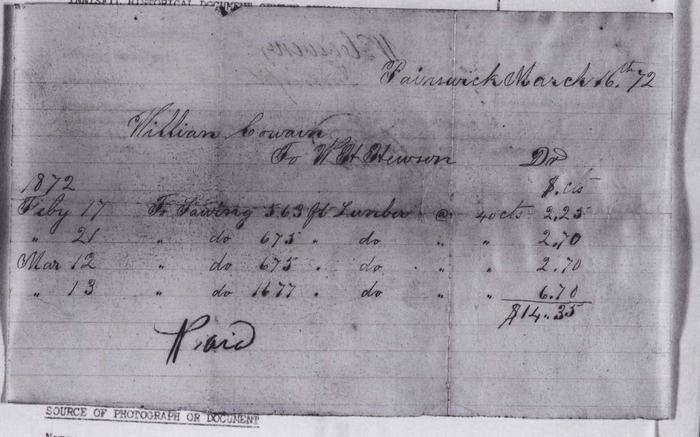 INNISFIL HISTORICAL DOCUMENT
Painswick March 16th 72
William Cowan
To W H Hewson Dr
1872 $. cts
Feby 17 To Sawing 563 ft Lumber @ 40 cts 2,25
" 21 " do 675 " do " " 2.70
Mar 12 " do 675 " do " " 2.70
" 13 " do 1677 " do " " 6.70
$14.35
Paid
SOURCE OF PHOTOGRAPH OR DOCUMENT